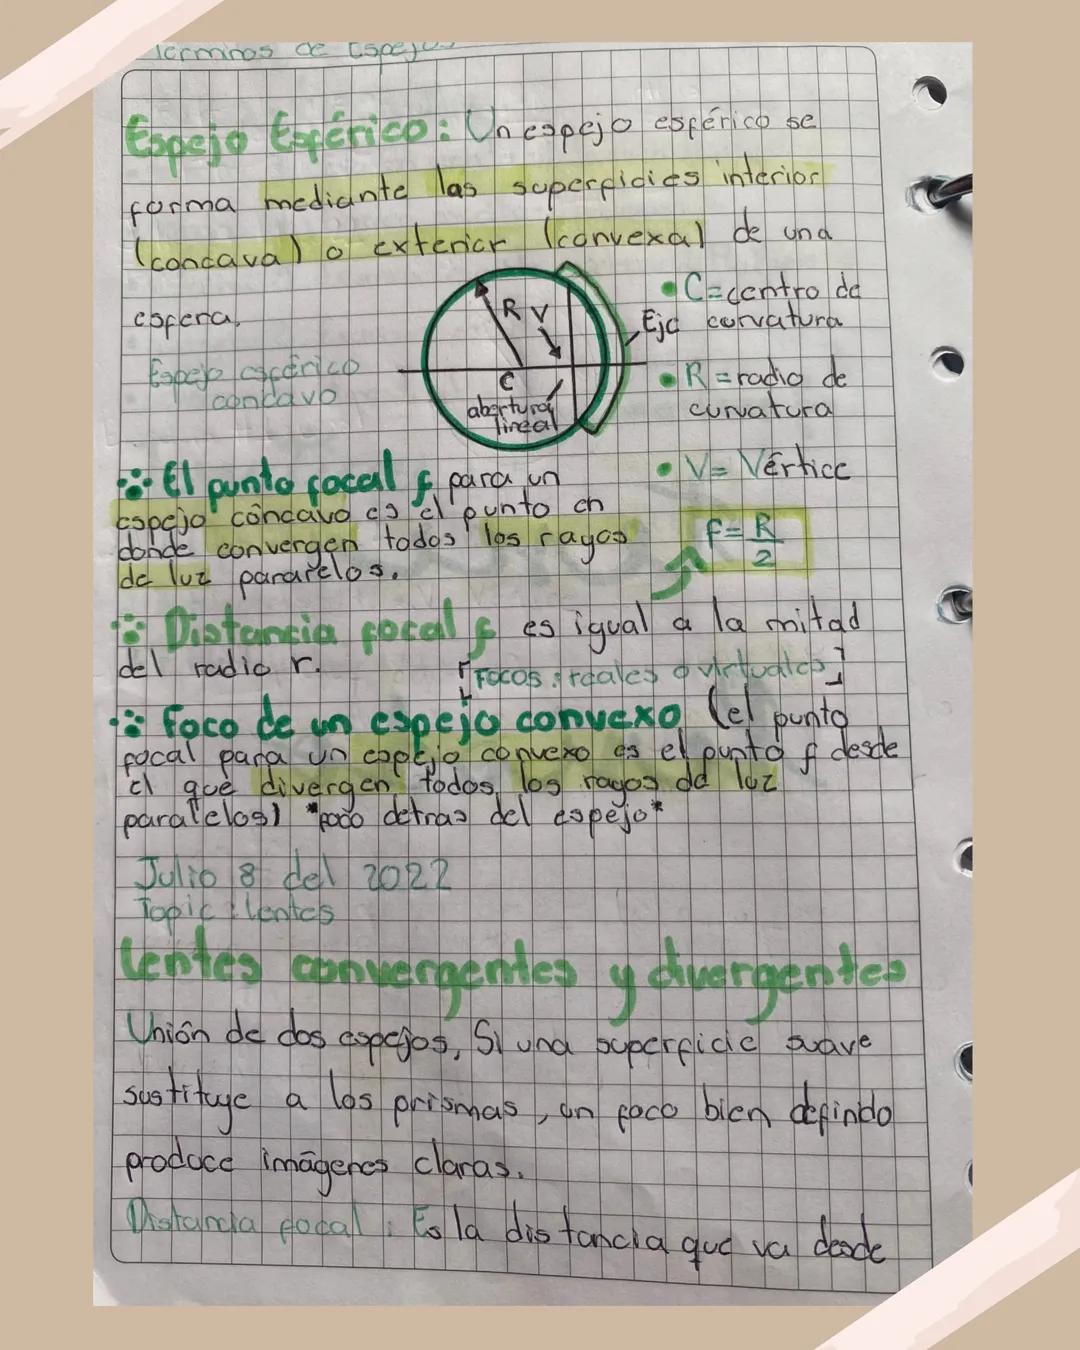 Términos de Espejos
Espejo Esférico: Un espejo esférico se
forma mediante las superficies interior
(concava) o exterior (convexa) de una
esfera.
Espejo esférico
concavo
R V
C
abertura
lineal
Eje
• C=centro de
curvatura
• R = radio de
curvatura
• V= Vértice
El punto focal f para un
espejo cóncavo es el punto en
donde convergen todos los rayos
de luz pararelos.
f= R
2
Distancia focal f es igual a la mitad
del radio r.
[Focos: reales o virtuales]
Foco de un espejo convexo (el punto
focal para un espejo convexo es el punto f desde
el que divergen todos los rayos de luz
paralelos) *foco detras del espejo*
Julio 8 del 2022
Topic: lentes
lentes convergentes y divergentes
Unión de dos espejos, Si una superficie suave
sustituye a los prismas, un foco bien defindo
produce imágenes claras.
Distancia focal: Es la distancia que va desde